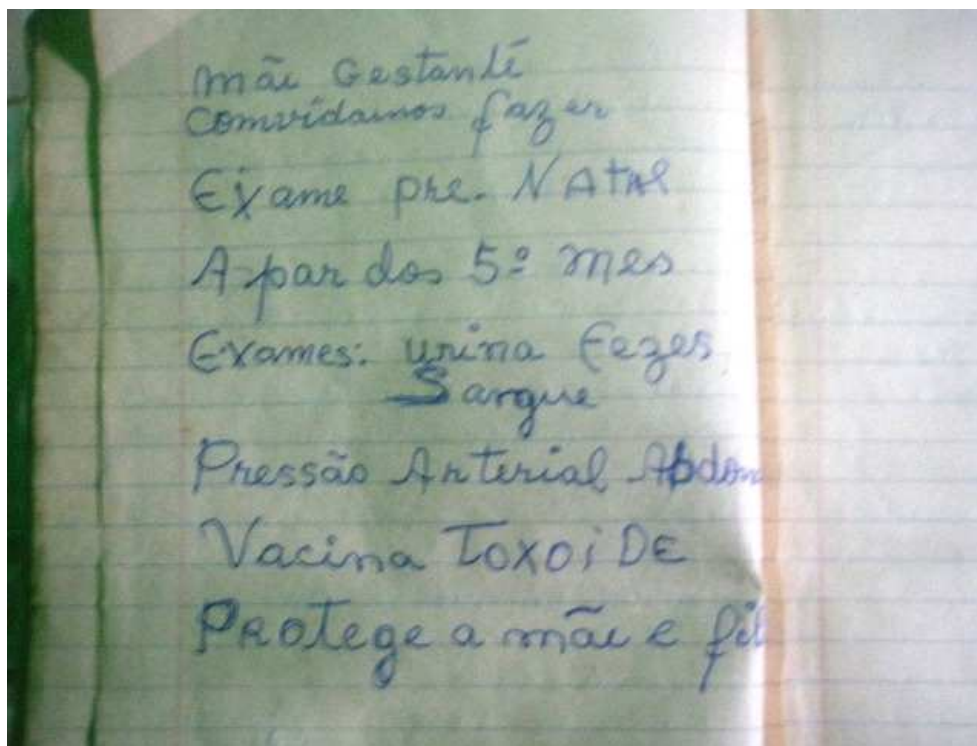 mãe Gestante
comvidamos fazer
Exame pre. NAtAl
A par dos 5º mes
Exames: urina fezes
Sangue
Pressão Arterial Abdom
Vacina ToxoiDE
Protege a mãe e fil